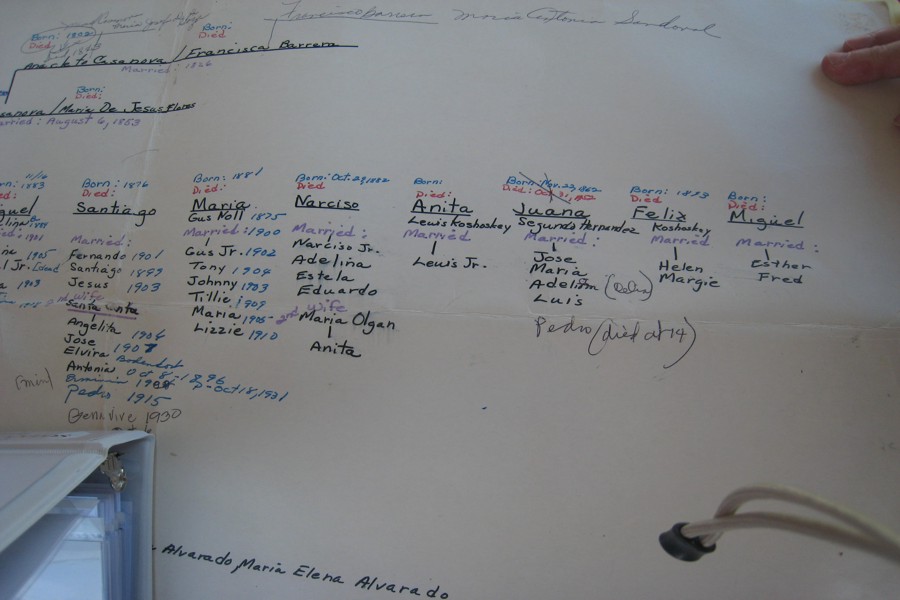 Francisco Barrera Maria Antonia Sandoval
Born: 1802
Died:
Born:
Died
Anacleto Casanova / Francisca Barrera
Married: 1826
Born:
Died:
/ Maria De Jesus Flores
Married: August 6, 1853
1883
Died:
1901
1905
1903
Born: 1876
Died:
Santiago
Married:
Fernando 1901
Santiago 1899
Jesus 1903
2nd wife
Angelita
Jose 1904
Elvira 1907
Antonia Oct 8-1896
D-Oct 18, 1931
Pedro 1915
Genavive 1930
Born: 1881
Died:
Maria
Gus Noll 1875
Married: 1900
Gus Jr. 1902
Tony 1904
Johnny 1903
Tillie 1909
Maria 1905
Lizzie 1910
Born: Oct. 29, 1882
Died
Narciso
Married:
Narciso Jr.
Adelina
Estela
Eduardo
2nd wife
Maria Olgan
Anita
Born:
Died:
Anita
Lewis Koshoskey
Married
Lewis Jr.
Born: Nov. 23, 1862
Died:
Juana
Segundo Hernandez
Married:
Jose
Maria
Adelina
Luis
Pedro (died at 14)
Born: 1893
Died
Felix
Koshoskey
Married
Helen
Margie
Born:
Died:
Miguel
Married:
Esther
Fred
Alvarado, Maria Elena Alvarado